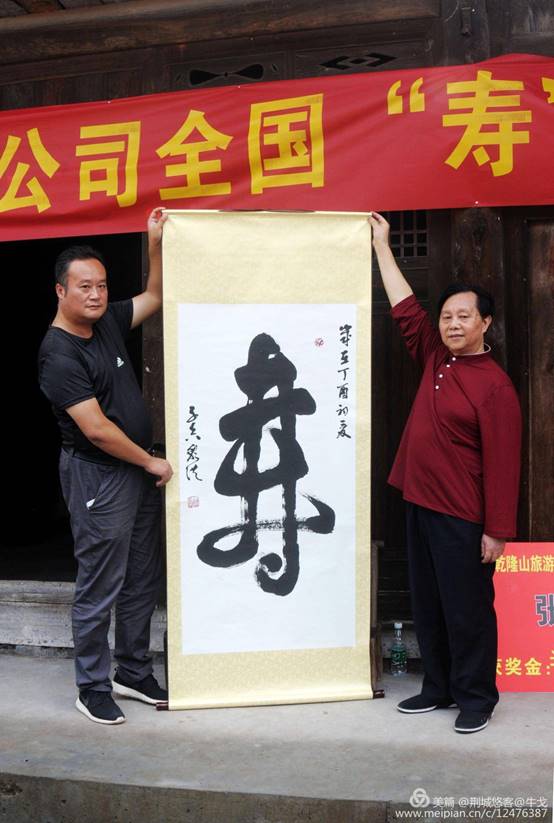 公司全国“寿”
寿
岁在丁酉初夏
乾隆山旅游
张
奖金:
美篇 @荆城悠客@牛戈
www.meipian.cn/c/12476387